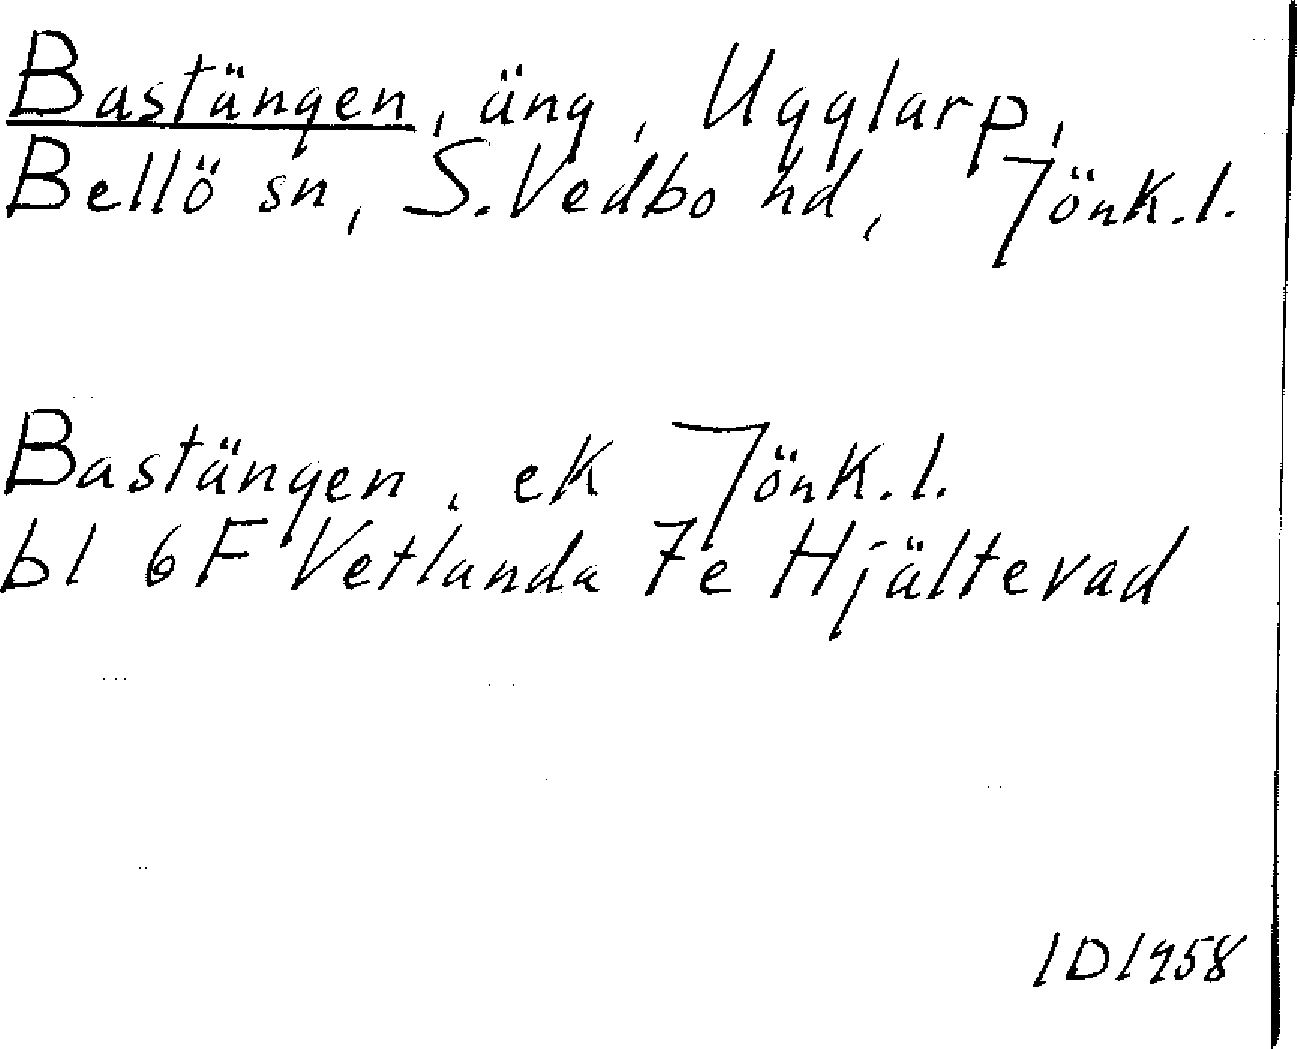 Bastängen, äng, Ugglarp,
Bellö sn, S. Vedbo hd, Jönk.l.
Bastängen, ek Jönk.l.
bl 6F Vetlanda 7e Hjältevad
ID 1958